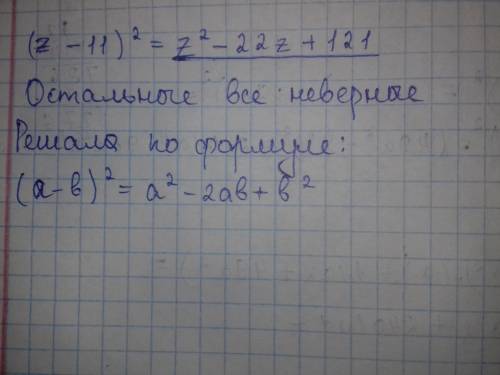 (z - 11)² = z² - 22z + 121
Остальные все неверные
Решала по формуле:
(а-в)² = а² - 2ав + в²